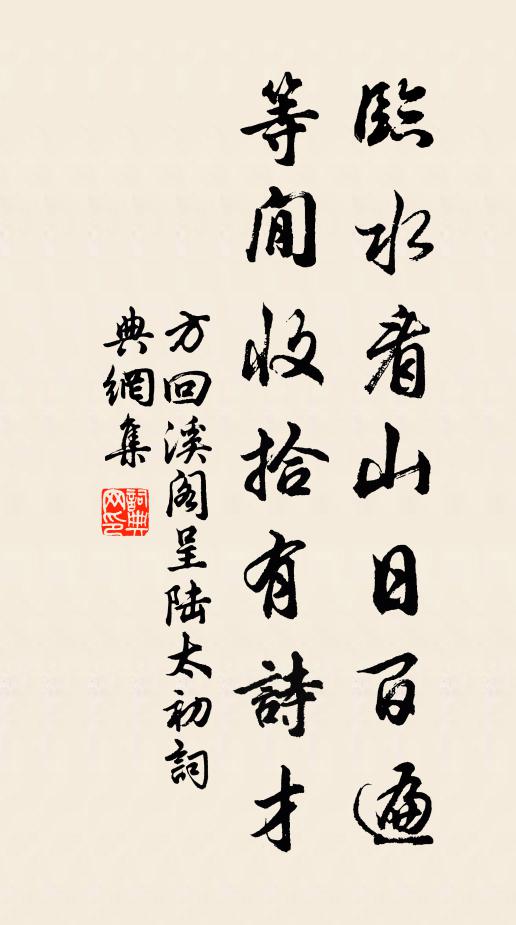 臨水看山日百遍
等閒收拾有詩才
方回溪閣呈陆太初詞
典網集
詞典網印